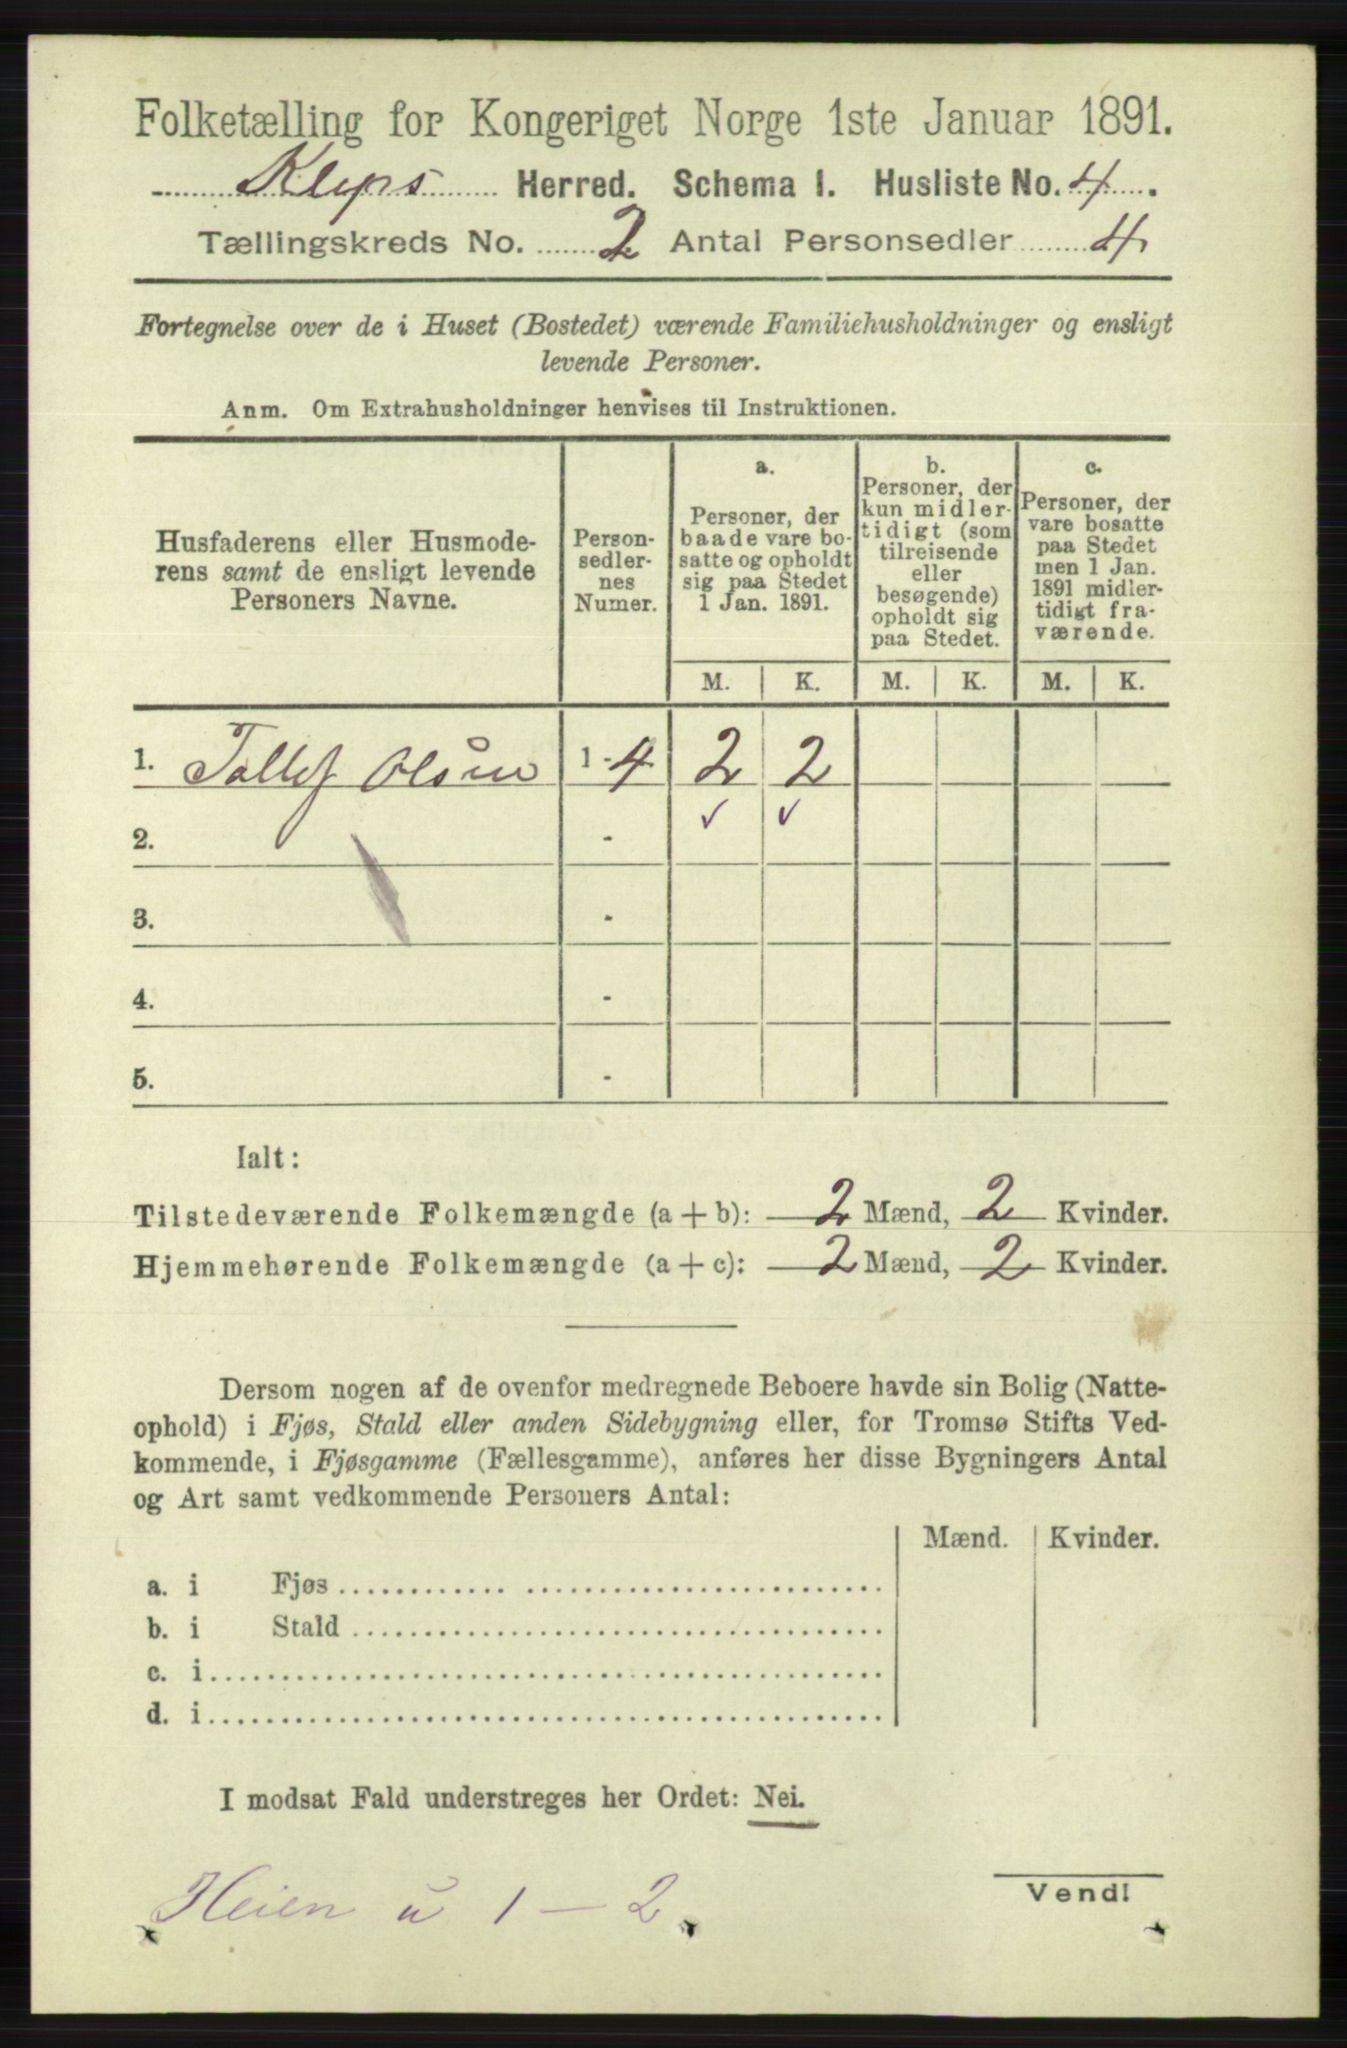 Folketælling for Kongeriget Norge 1ste Januar 1891.
Kleps Herred. Schema I. Husliste No. 4.
Tællingskreds No. 2 Antal Personsedler 4
Fortegnelse over de i Huset (Bostedet) værende Familiehusholdninger og ensligt
levende Personer.
Anm. Om Extrahusholdninger henvises til Instruktionen.
Husfaderens eller Husmode-
rens samt de ensligt levende
Personers Navne.
Person-
sedler-
nes
Numer.
a.
Personer, der
baade vare bo-
satte og opholdt
sig paa Stedet
1 Jan. 1891.
b.
Personer, der
kun midler-
tidigt (som
tilreisende
eller
besøgende)
opholdt sig
paa Stedet.
c.
Personer, der
vare bosatte
paa Stedet
men 1 Jan.
1891 midler-
tidigt fra-
værende.
M. K. M. K. M. K.
1. Tallef Olsen 1-4 2 2
✓ ✓
2. -
3. -
4. -
5. -
Ialt:
Tilstedeværende Folkemængde (a + b): 2 Mænd, 2 Kvinder.
Hjemmehørende Folkemængde (a + c): 2 Mænd, 2 Kvinder.
Dersom nogen af de ovenfor medregnede Beboere havde sin Bolig (Natte-
ophold) i Fjøs, Stald eller anden Sidebygning eller, for Tromsø Stifts Ved-
kommende, i Fjøsgamme (Fællesgamme), anføres her disse Bygningers Antal
og Art samt vedkommende Personers Antal:
Mænd. Kvinder.
a. i Fjøs
b. i Stald
c. i
d. i
I modsat Fald understreges her Ordet: Nei.
Heien u 1 - 2
Vend!